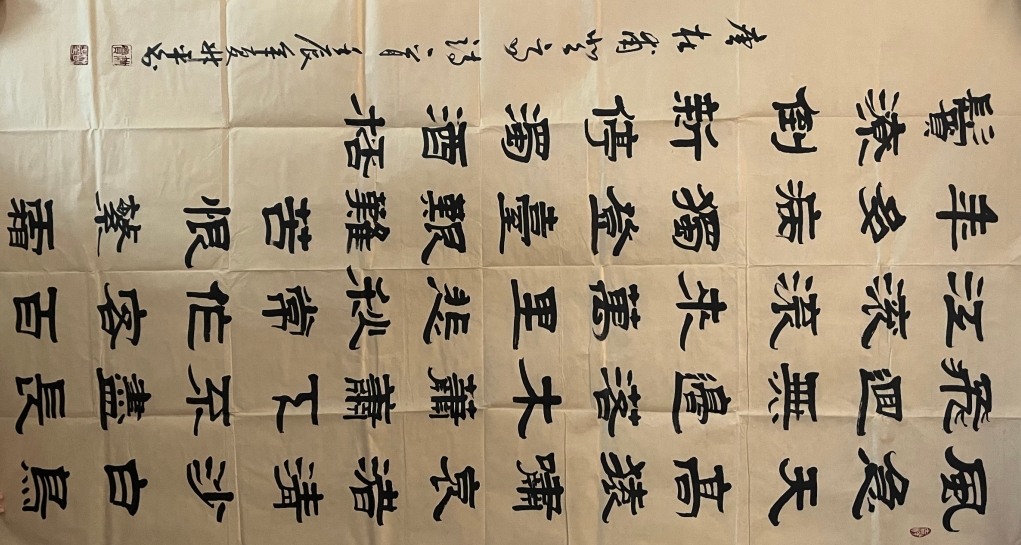 風急天高猿嘯哀渚清沙白鳥
飛迴無邊落木蕭蕭下不盡長
江滾滾來萬里悲秋常作客百
年多病獨登臺艱難苦恨繁霜
鬢潦倒新停濁酒杯
唐杜甫登高詩一首壬辰年夏